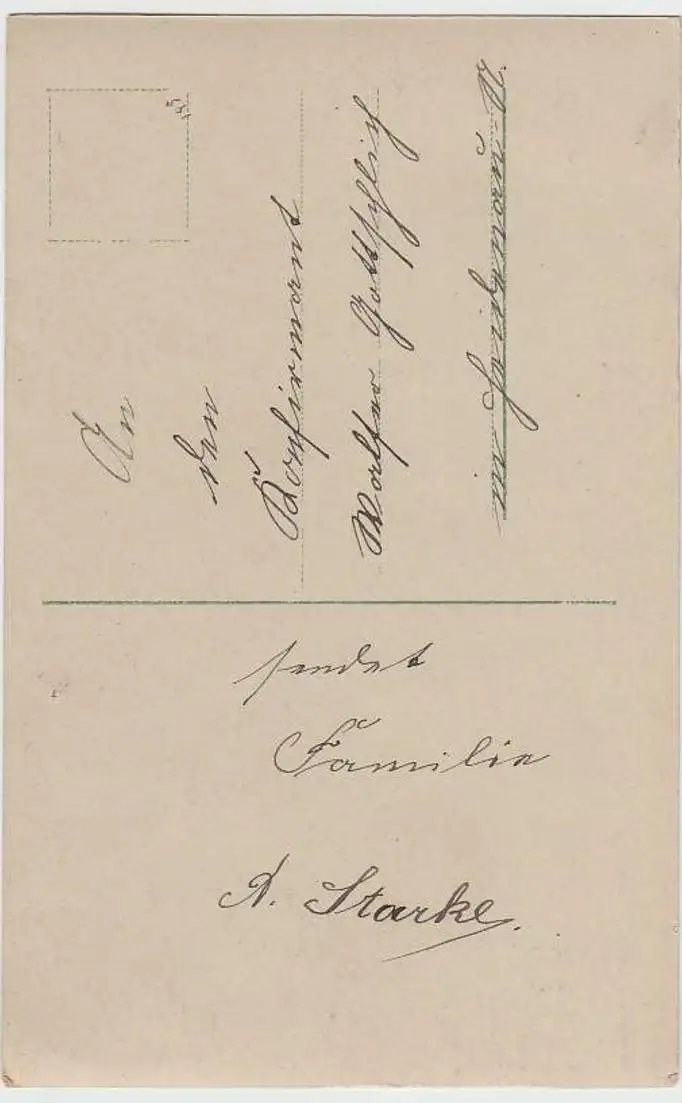 An
den
Konfirmant
Walter Gottschlich
in
sendet
Familie
A. Starke.